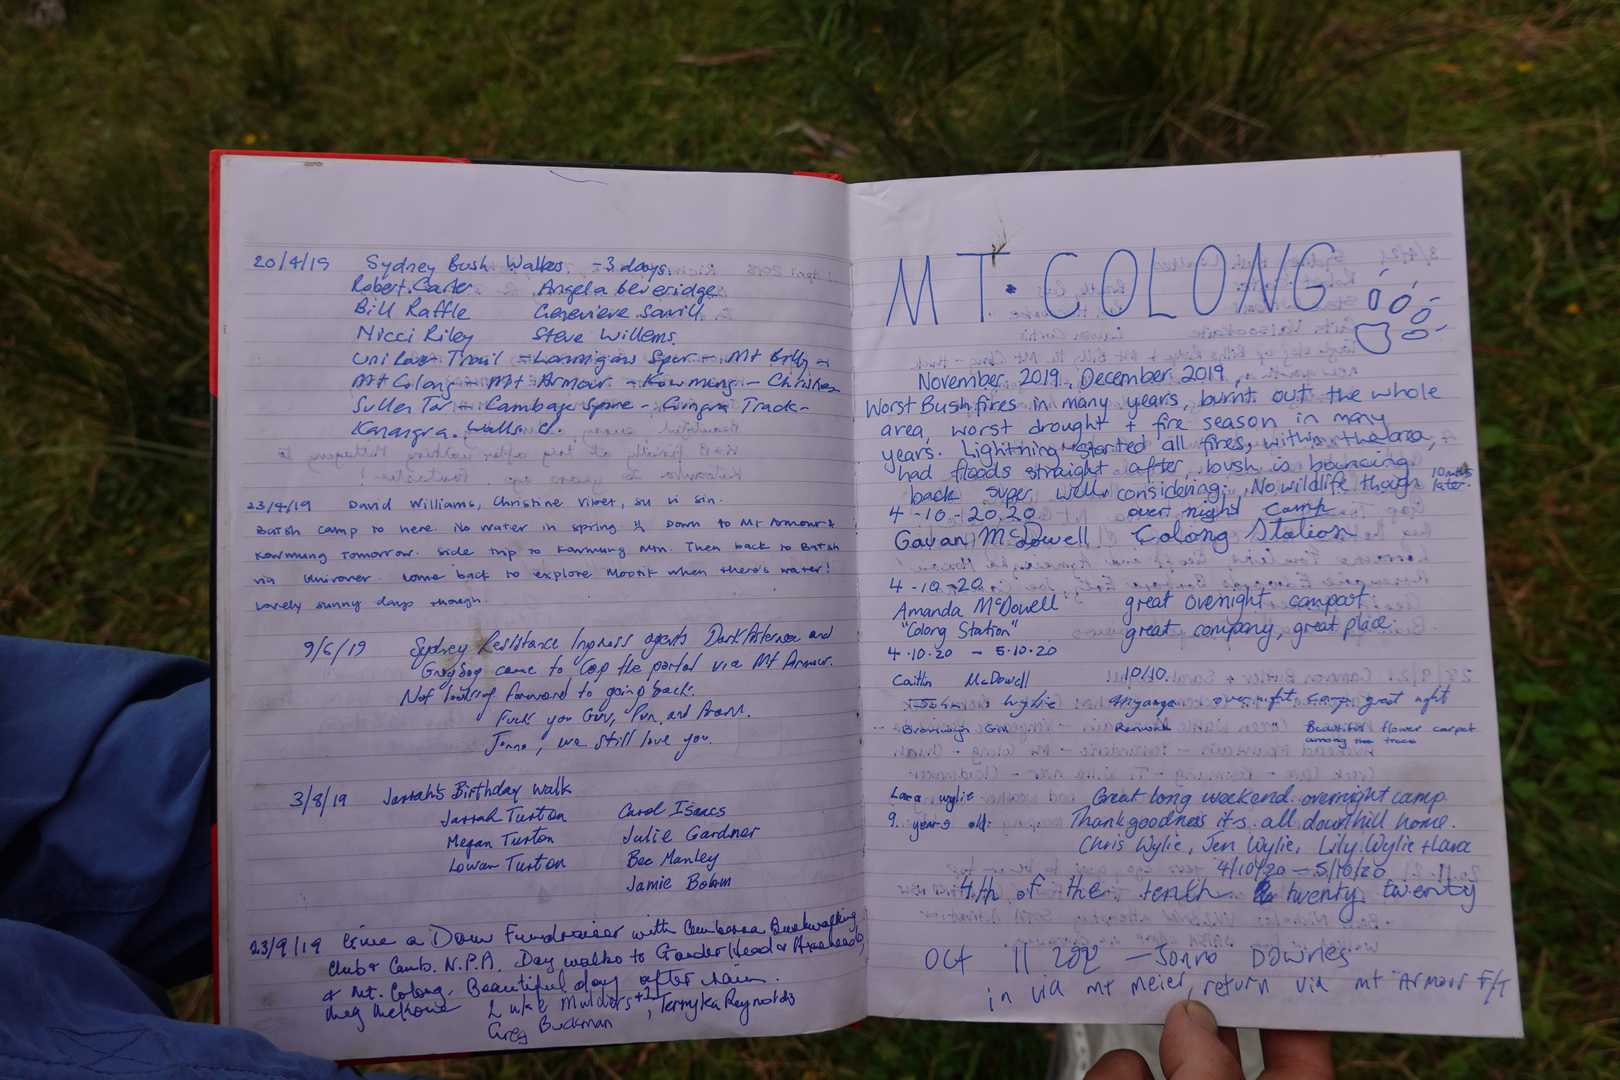 20/4/19 Sydney Bush Walkers - 3 days.
Robert Carter Angela Beveridge
Bill Raffle Genevieve Savill
Nicci Riley Steve Willems.
Uni Rover Trail - Lannigans Spur - Mt Billy -
Mt Colong - Mt Armour - Kowmung - Christes
- Cambage Spire - Gingra Track -
Kanangra Walls.
23/4/19 David Williams, Christine
Batsh camp to here. No water in spring Down to Mt Armour &
Kowmung tomorrow. Side trip to Mtn. Then back to Batsh
via Unirover. Come back to explore Moorit when there's water!
Lovely sunny days though.
9/6/19 Sydney Resistance Ingress agents and
Greydog came to cap the portal via Mt Armour.
Not looking forward to going back.
Fuck you and
we still love you.
3/8/19 Jarrah's Birthday walk
Jarrah Turton Carol Isaacs
Megan Turton Julie Gardner
Lowan Turton Bec Manley
Jamie Bohm
23/9/19 Give a Dam Fundraiser with Canberra Bushwalking
Club & Canb. N.P.A. Day walks to Head &
& Mt. Colong. Beautiful day after rain.
Meg Luke +1, Reynolds
Greg Buckman
MT. COLONG
November 2019, December 2019,
Worst Bushfires in many years, burnt out the whole
area, worst drought + fire season in many
years. Lightning started all fires, within the area,
had floods straight after, bush is bouncing
back super well considering. No wildlife though 10 mths later.
4-10-2020 over night camp
Gavan McDowell Colong Station
4-10-20.
Amanda McDowell great overnight campout
"Colong Station" great company, great place.
4.10.20 - 5.10.20
Caitlin McDowell 10/10.
Wylie overnight camp great night
Beautiful flower carpet
among the trees
Lara Wylie Great long weekend overnight camp.
9 years old: Thank goodness it's all downhill home.
Chris Wylie, Jen Wylie, Lily Wylie + Lara
4/10/20 - 5/10/20
4th of the tenth twenty twenty
Oct 11 - Jonno Downes
in via Mt Meier, return via Mt Armour F/T